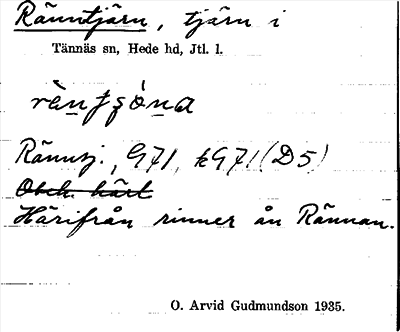 Ränntjärn, tjärn i
Tännäs sn, Hede hd, Jtl. l.
Ränntj., G71, kG71(D5)
Obek. härl
Härifrån rinner ån Rännan.
O. Arvid Gudmundson 1935.